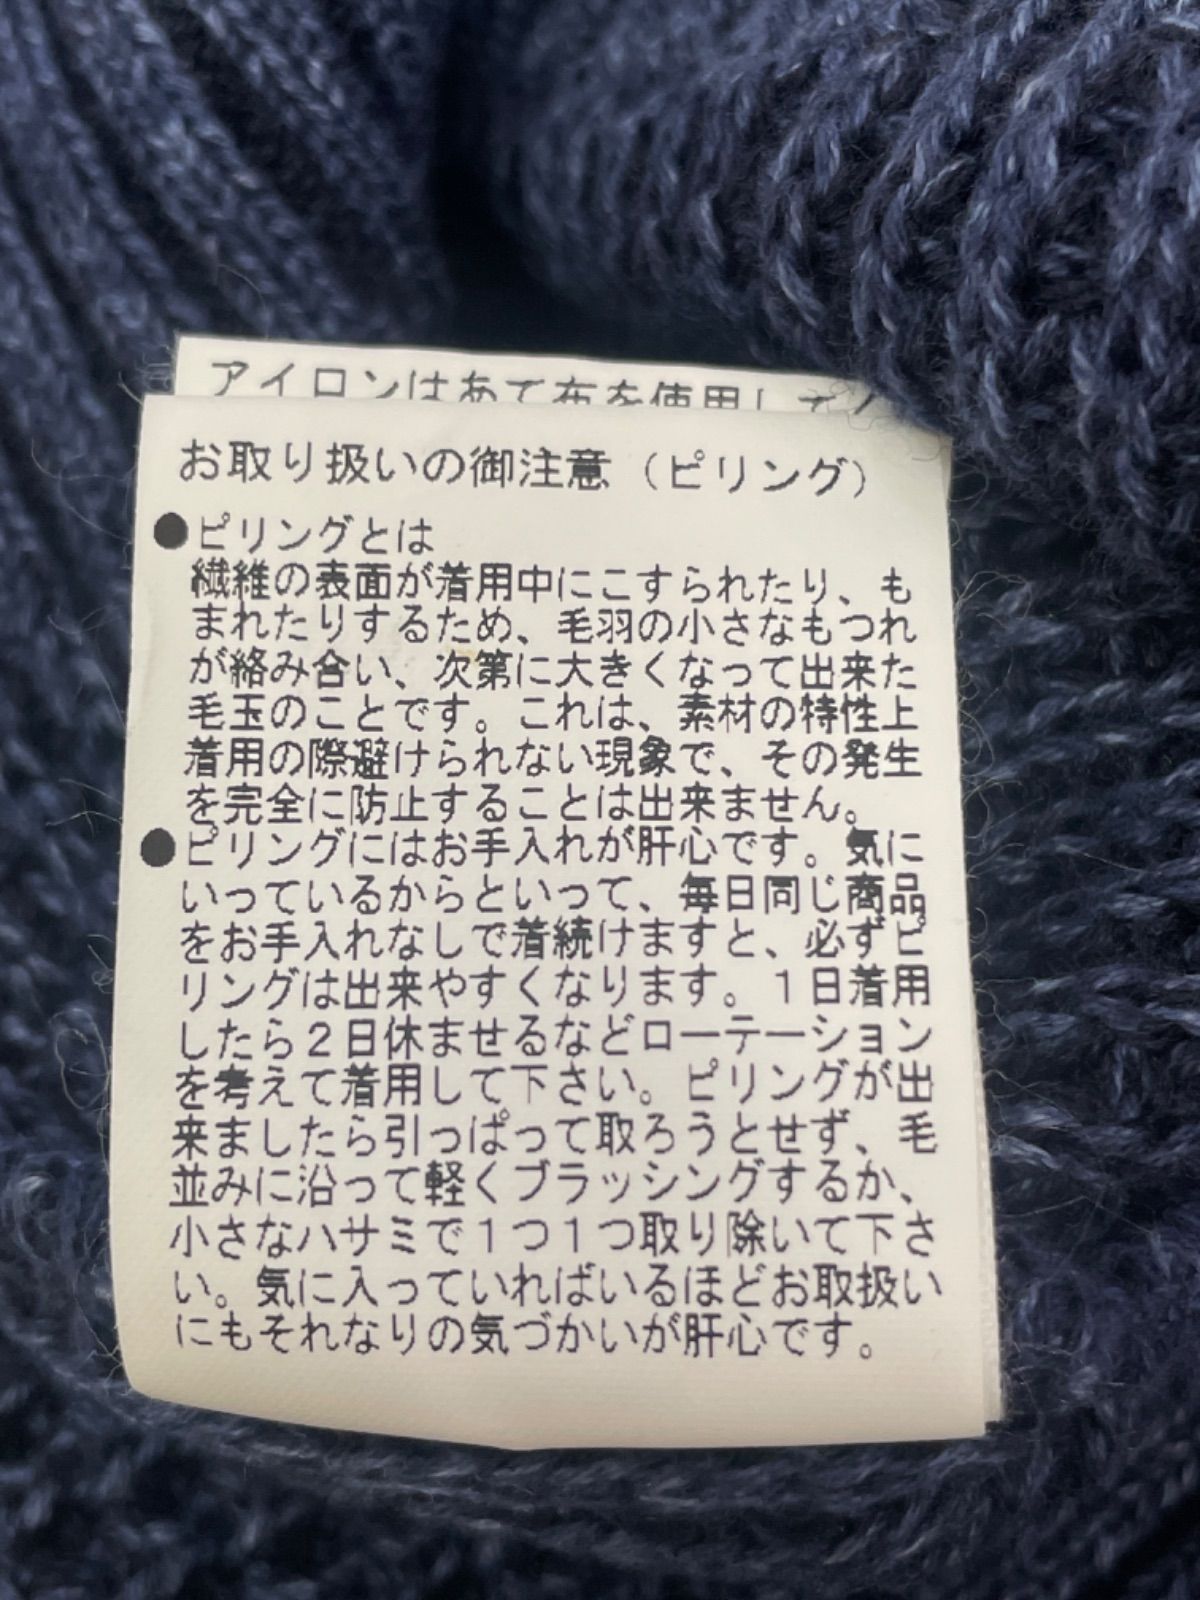 アイロンはあて布を使用して
お取り扱いの御注意（ピリング）
●ピリングとは
繊維の表面が着用中にこすられたり、も
まれたりするため、毛羽の小さなもつれ
が絡み合い、次第に大きくなって出来た
毛玉のことです。これは、素材の特性上
着用の際避けられない現象で、その発生
を完全に防止することは出来ません。
●ピリングにはお手入れが肝心です。気に
いっているからといって、毎日同じ商品
をお手入れなしで着続けますと、必ずピ
リングは出来やすくなります。１日着用
したら２日休ませるなどローテーション
を考えて着用して下さい。ピリングが出
来ましたら引っぱって取ろうとせず、毛
並みに沿って軽くブラッシングするか、
小さなハサミで１つ１つ取り除いて下さ
い。気に入っていればいるほどお取扱い
にもそれなりの気づかいが肝心です。